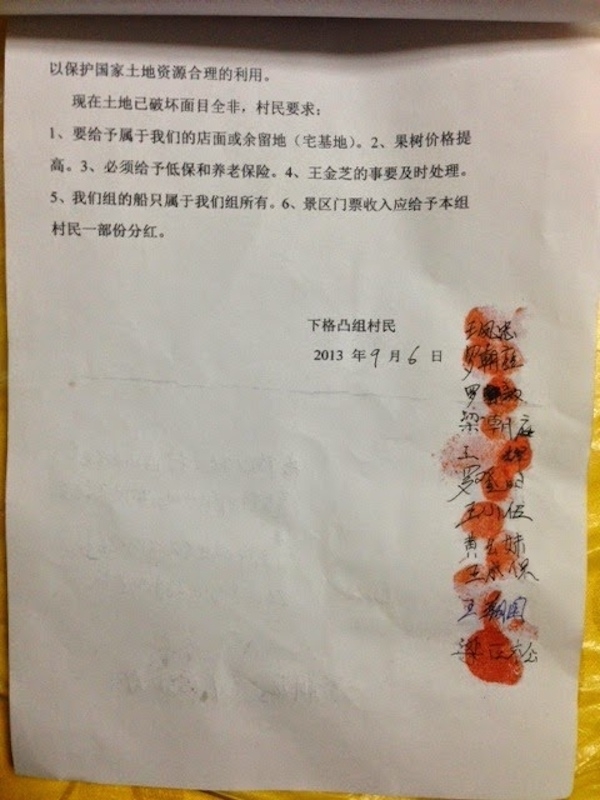 以保护国家土地资源合理的利用。
现在土地已破坏面目全非，村民要求：
1、要给予属于我们的店面或余留地（宅基地）。2、果树价格提
高。3、必须给予低保和养老保险。4、王金芝的事要及时处理。
5、我们组的船只属于我们组所有。6、景区门票收入应给予本组
村民一部份分红。
下格凸组村民
2013 年 9 月 6 日
王凤忠
罗朝庭
罗
梁朝庭
王 辉
罗
王小伍
黄 妹
王 保
王朝国
梁正松